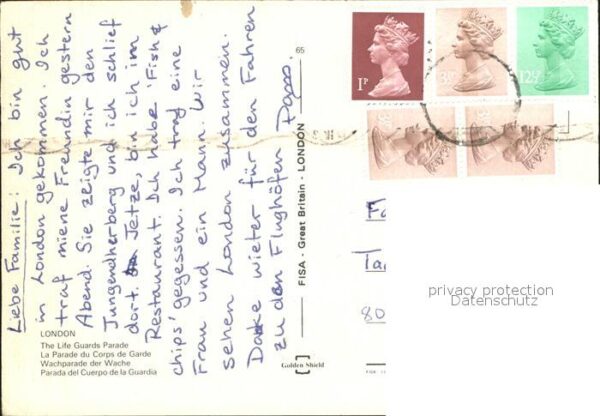 Liebe Familie: Ich bin gut
in London gekommen. Ich
traf miene Freundin gestern
Abend. Sie zeigte mir den
Jungendherberg und ich schlief
dort. Jetze, bin ich im
Restaurant. Ich habe 'Fish &
chips' gegessen. Ich traf eine
Frau und ein Mann. Wir
sehen London zusammen.
Danke wieter für den Fahren
zu den Flughöfen
65
FISA - Great Britain - LONDON
LONDON
The Life Guards Parade
La Parade du Corps de Garde
Wachparade der Wache
Parada del Cuerpo de la Guardia
Golden Shield
1P
12½P
80
privacy protection
Datenschutz